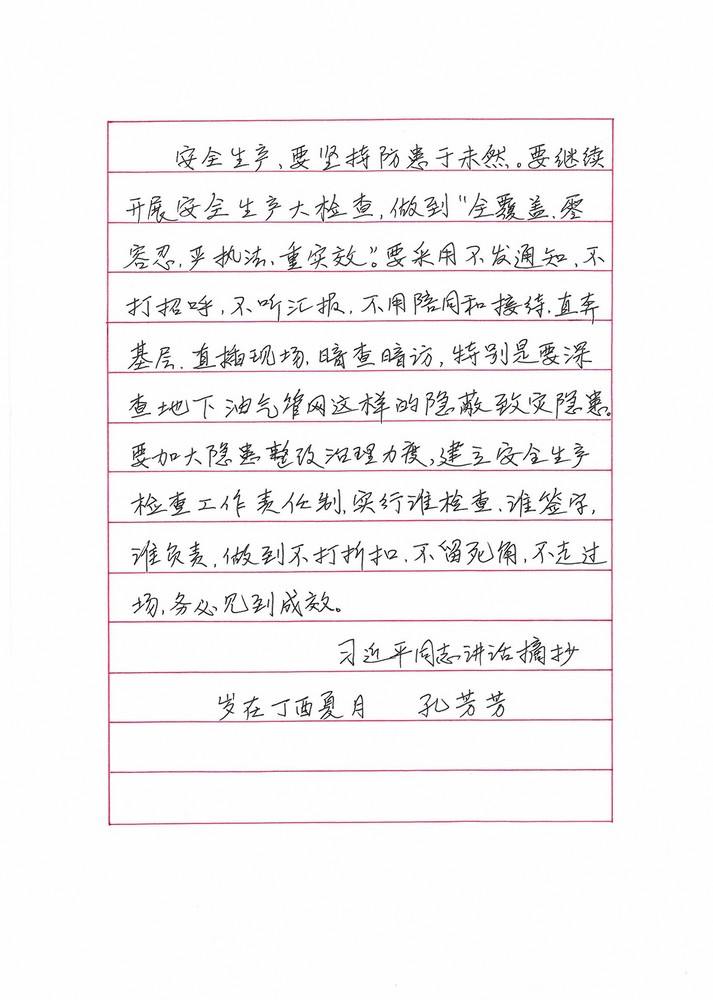 安全生产、要坚持防患于未然。要继续
开展安全生产大检查,做到“全覆盖、零
容忍、严执法、重实效”。要采用不发通知、不
打招呼、不听汇报、不用陪同和接待、直奔
基层、直插现场、暗查暗访,特别是要深
查地下油气管网这样的隐蔽致灾隐患。
要加大隐患整改治理力度,建立安全生产
检查工作责任制,实行谁检查、谁签字、
谁负责,做到不打折扣、不留死角、不走过
场,务必见到成效。
习近平同志讲话摘抄
岁在丁酉夏月 孔芳芳